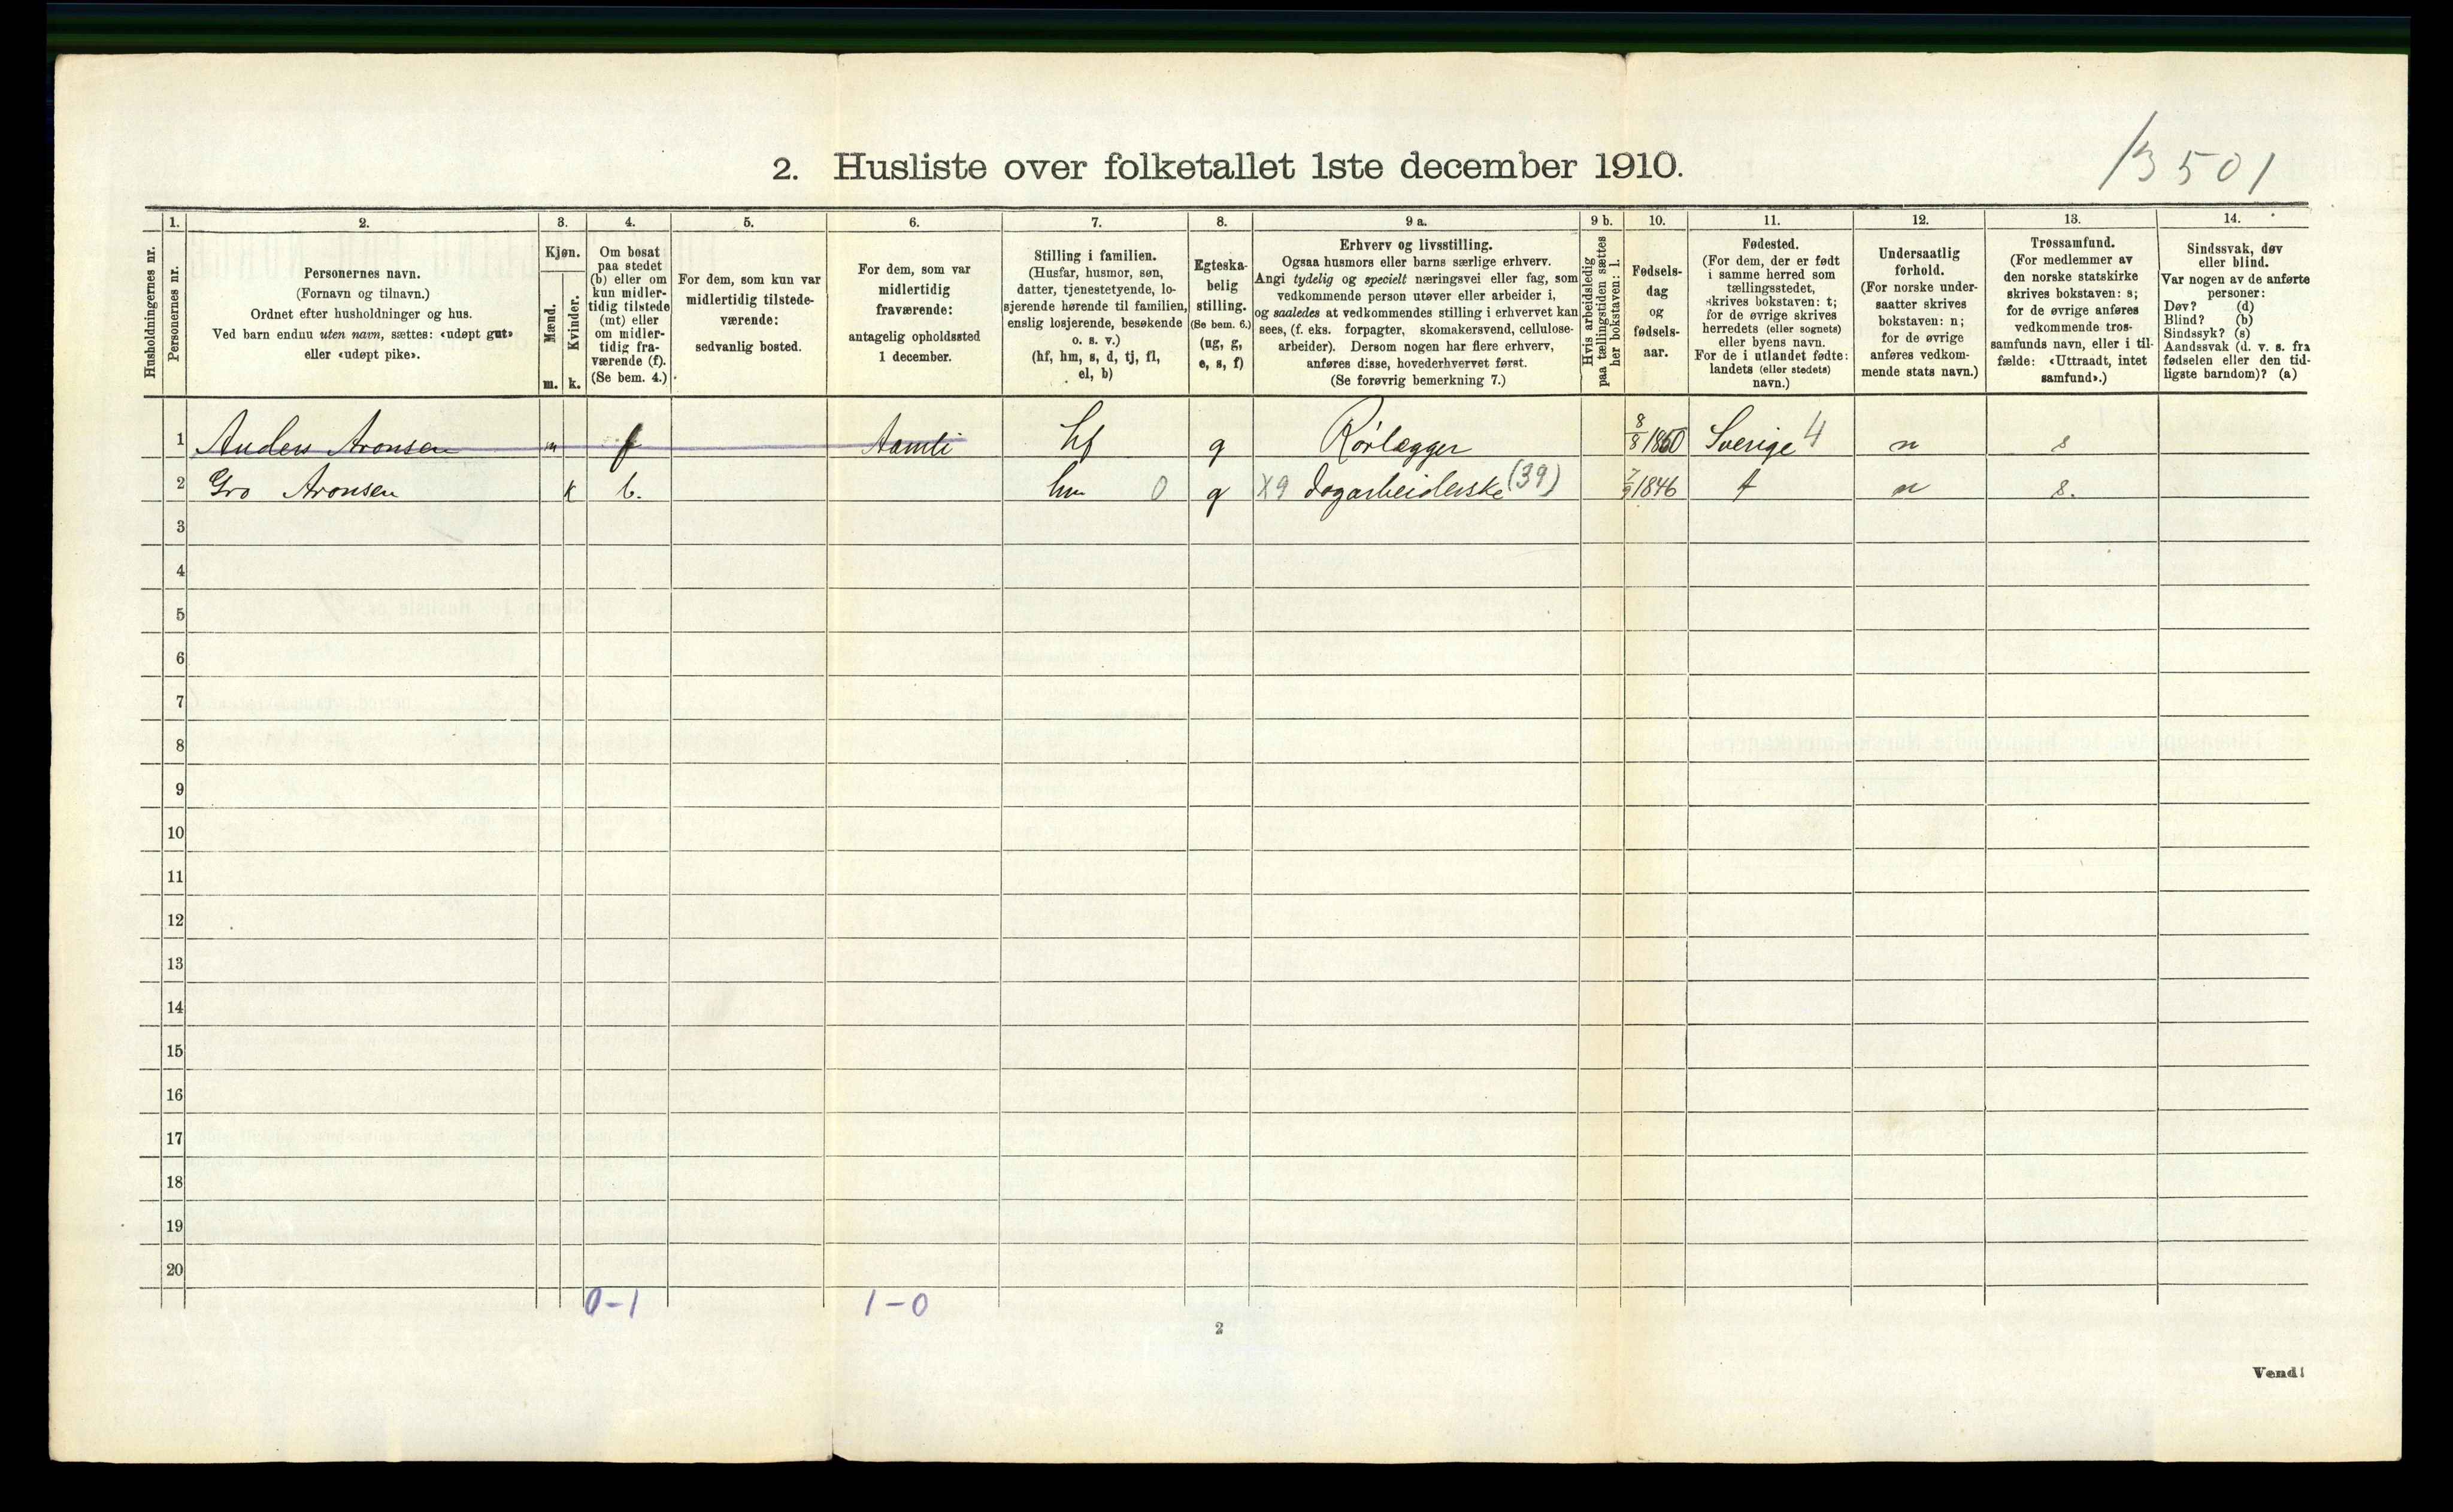 13501
2. Husliste over folketallet 1ste december 1910.
Husholdningernes nr.
1. Personernes nr.
2. Personernes navn.
(Fornavn og tilnavn.)
Ordnet efter husholdninger og hus.
Ved barn endnu uten navn, sættes: «udøpt gut»
eller «udøpt pike».
3. Kjøn.
Mænd. m.
Kvinder. k.
4. Om bosat
paa stedet
(b) eller om
kun midler-
tidig tilstede
(mt) eller
om midler-
tidig fra-
værende (f).
(Se bem. 4.)
5. For dem, som kun var
midlertidig tilstede-
værende:
sedvanlig bosted.
6. For dem, som var
midlertidig
fraværende:
antagelig opholdssted
1 december.
7. Stilling i familien.
(Husfar, husmor, søn,
datter, tjenestetyende, lo-
sjerende hørende til familien,
enslig losjerende, besøkende
o. s. v.)
(hf, hm, s, d, tj, fl,
el, b)
8. Egteska-
belig
stilling.
(Se bem. 6.)
(ug, g,
e, s, f)
9 a. Erhverv og livsstilling.
Ogsaa husmors eller barns særlige erhverv.
Angi tydelig og specielt næringsvei eller fag, som
vedkommende person utøver eller arbeider i,
og saaledes at vedkommendes stilling i erhvervet kan
sees, (f. eks. forpagter, skomakersvend, cellulose-
arbeider). Dersom nogen har flere erhverv,
anføres disse, hovederhvervet først.
(Se forøvrig bemerkning 7.)
9 b. Hvis arbeidsledig
paa tællingstiden sættes
her bokstaven: l.
10. Fødsels-
dag
og
fødsels-
aar.
11. Fødested.
(For dem, der er født
i samme herred som
tællingsstedet,
skrives bokstaven: t;
for de øvrige skrives
herredets (eller sognets)
eller byens navn.
For de i utlandet fødte:
landets (eller stedets)
navn.)
12. Undersaatlig
forhold.
(For norske under-
saatter skrives
bokstaven: n;
for de øvrige
anføres vedkom-
mende stats navn.)
13. Trossamfund.
(For medlemmer av
den norske statskirke
skrives bokstaven: s;
for de øvrige anføres
vedkommende tros-
samfunds navn, eller i til-
fælde: «Uttraadt, intet
samfund».)
14. Sindssvak, døv
eller blind.
Var nogen av de anførte
personer:
Døv? (d)
Blind? (b)
Sindssyk? (s)
Aandssvak (d. v. s. fra
fødselen eller den tid-
ligste barndom)? (a)
1 Anders Aronsen m f Aamli hf g Rørlægger 8/8 1860 Sverige 4 n s
2 Gro Aronsen k b. hm 0 g X9 dagarbeiderske (39) 7/9 1846 t n s.
3
4
5
6
7
8
9
10
11
12
13
14
15
16
17
18
19
20
0-1 1-0
2
Vend!